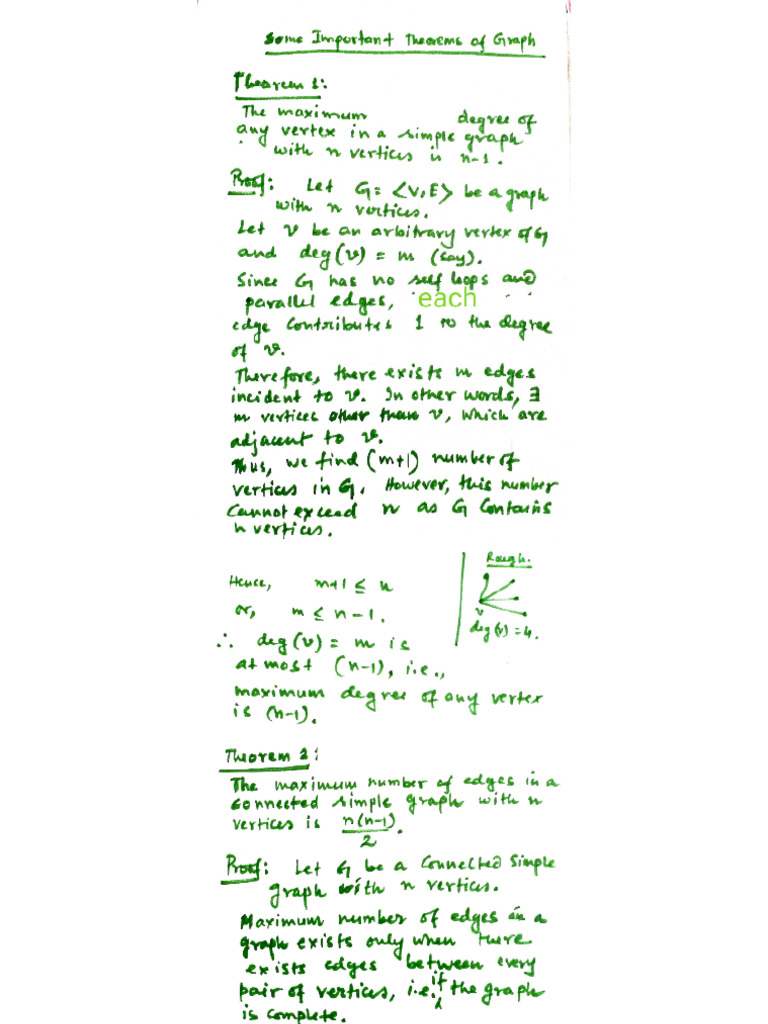 Some Important Theorems of Graph
Theorem 1:
The maximum degree of
any vertex in a simple graph
with n vertices is n-1.
Proof: Let G = <V,E> be a graph
with n vertices.
Let v be an arbitrary vertex of G
and deg(v) = m (say).
Since G has no self loops and
parallel edges, each
edge contributes 1 to the degree
of v.
Therefore, there exists m edges
incident to v. In other words, ∃
m vertices other than v, which are
adjacent to v.
Thus, we find (m+1) number of
vertices in G. However, this number
cannot exceed n as G contains
n vertices.
Hence, m+1 ≤ n
or, m ≤ n-1.
Rough.
v
deg(v) = 4.
∴ deg(v) = m is
at most (n-1), i.e.,
maximum degree of any vertex
is (n-1).
Theorem 2:
The maximum number of edges in a
connected simple graph with n
vertices is n(n-1)/2.
Proof: Let G be a Connected Simple
graph with n vertices.
Maximum number of edges in a
graph exists only when there
exists edges between every
pair of vertices, i.e. if the graph
is complete.